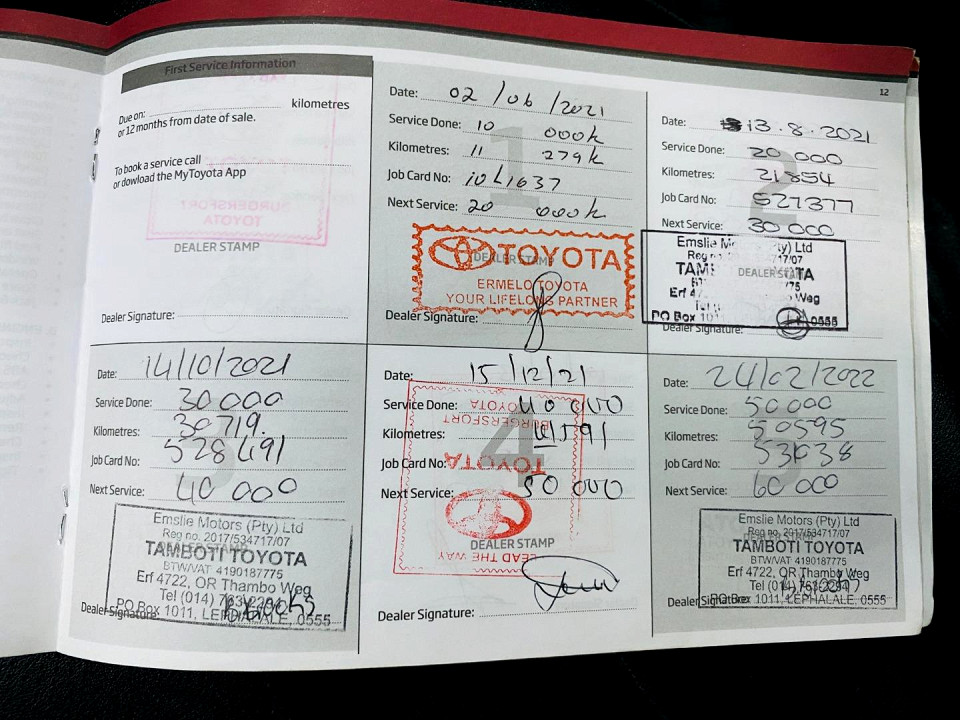 First Service Information
Due on: kilometres
or 12 months from date of sale.
To book a service call
or dowload the MyToyota App
BURGERSFORT
TOYOTA
DEALER STAMP
Dealer Signature:
Date: 02/06/2021
Service Done: 10 000k
Kilometres: 11 279k
Job Card No:
Next Service: 20 000k
1
TOYOTA
DEALER STAMP
ERMELO TOYOTA
YOUR LIFELONG PARTNER
Dealer Signature:
12
Date: 13.8.2021
Service Done: 20 000
Kilometres: 21 854
Job Card No: 527377
Next Service: 30 000
2
Emslie (Pty) Ltd
717/07
DEALER STAMP
Erf 4 Weg
PO Box 101 0555
Dealer Signature:
Date: 14/10/2021
Service Done: 30 000
Kilometres: 30 719.
Job Card No: 528491
Next Service: 40 000
3
Emslie Motors (Pty) Ltd
Reg no. 2017/534717/07
TAMBOTI TOYOTA
BTW/VAT 4190187775
Erf 4722, OR Thambo Weg
Tel (014) 763
Dealer Signature:
PO Box 1011, LEPHALALE, 0555
Date: 15/12/21
Service Done: 40 000
Kilometres: 41591
Job Card No:
Next Service: 50 000
4
BURGERSFORT
TOYOTA
TOYOTA
DEALER STAMP
LEAD THE WAY
Dealer Signature:
Date: 24/02/2022
Service Done: 50 000
Kilometres: 50595
Job Card No:
Next Service: 60 000
5
Emslie Motors (Pty) Ltd
Reg no. 2017/534717/07
TAMBOTI TOYOTA
BTW/VAT 4190187775
Erf 4722, OR Thambo Weg
Tel (014)
Dealer Signature:
PO Box 1011, LEPHALALE, 0555